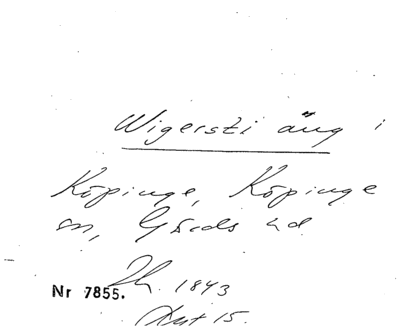 Wigersti äng i
Köpinge, Köpinge
sn, Gärds hd
1843
Nr 7855.
Akt 15.